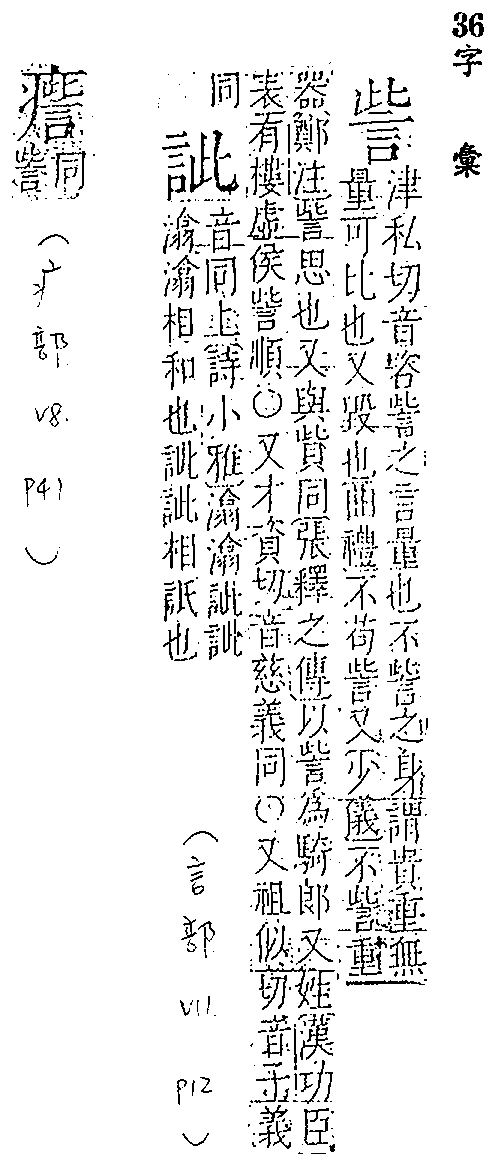 36
字彙
訾
津私切音咨訾之言量也不訾之身謂貴重無
量可比也又毀也曲禮不苟訾又少儀不訾重
器鄭注訾思也又與貲同張釋之傳以訾為騎郎又姓漢功臣
表有樓虛侯訾順○又才資切音慈義同○又祖似切音子義
同
訿
音同上詩小雅潝潝訿訿
潝潝相和也訿訿相詆也
(言部
V11.
P12
)
同
訾
(疒部
V8.
P41
)